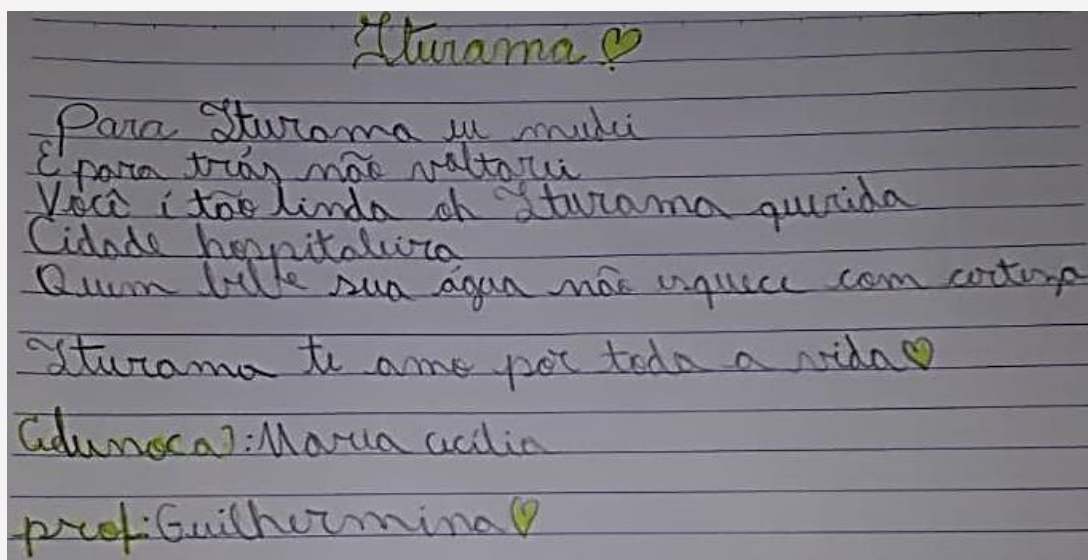 Iturama
Para Iturama eu mudei
E para trás não voltarei
Você é tão linda oh Iturama querida
Cidade hospitaleira
Quem bebe sua água não esquece com certeza
Iturama te amo por toda a vida
Maria Cecília
prof: Guilhermina